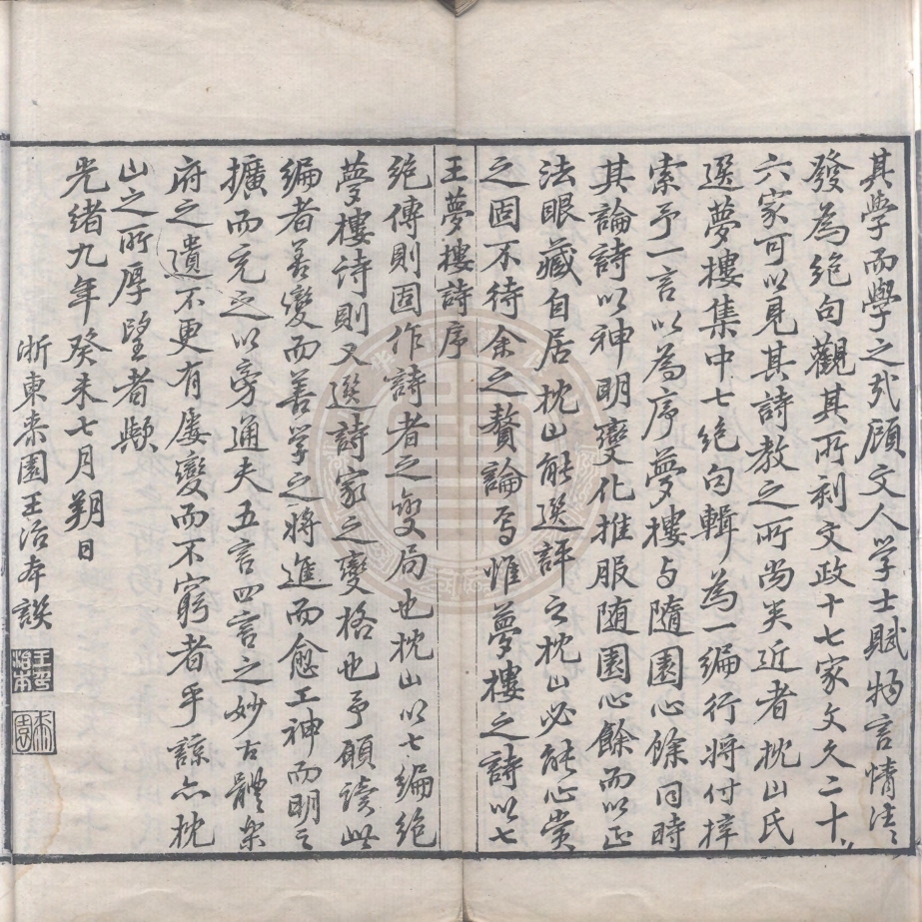 其學而學之北顧文人学士賦物言情清〻
發為絶句觀其所利文政十七家文久二十
六家可以見其詩教之所尚矣近者枕山氏
選夢樓集中七絶句輯為一編行將付梓
索予一言以為序夢樓与隨園心餘同時
其論詩以神明變化推服随園心餘而以正
法眼藏自居枕山能選評之枕山必能心賞
之固不待余之贅論焉惟夢樓之詩以七
王夢樓詩序
絶傳則固作詩者之變局也枕山以七編絶
夢樓诗則又選詩家之變格也予願读此
編者善變而善学之將進而愈工神而明之
擴而充之以旁通夫五言四言之妙古體楽
府之遺不更有屢變而不窮者乎諒亦枕
山之所厚望者歟
光緒九年癸未七月朔日
浙東桼園王治本誤
王印治本
桼園